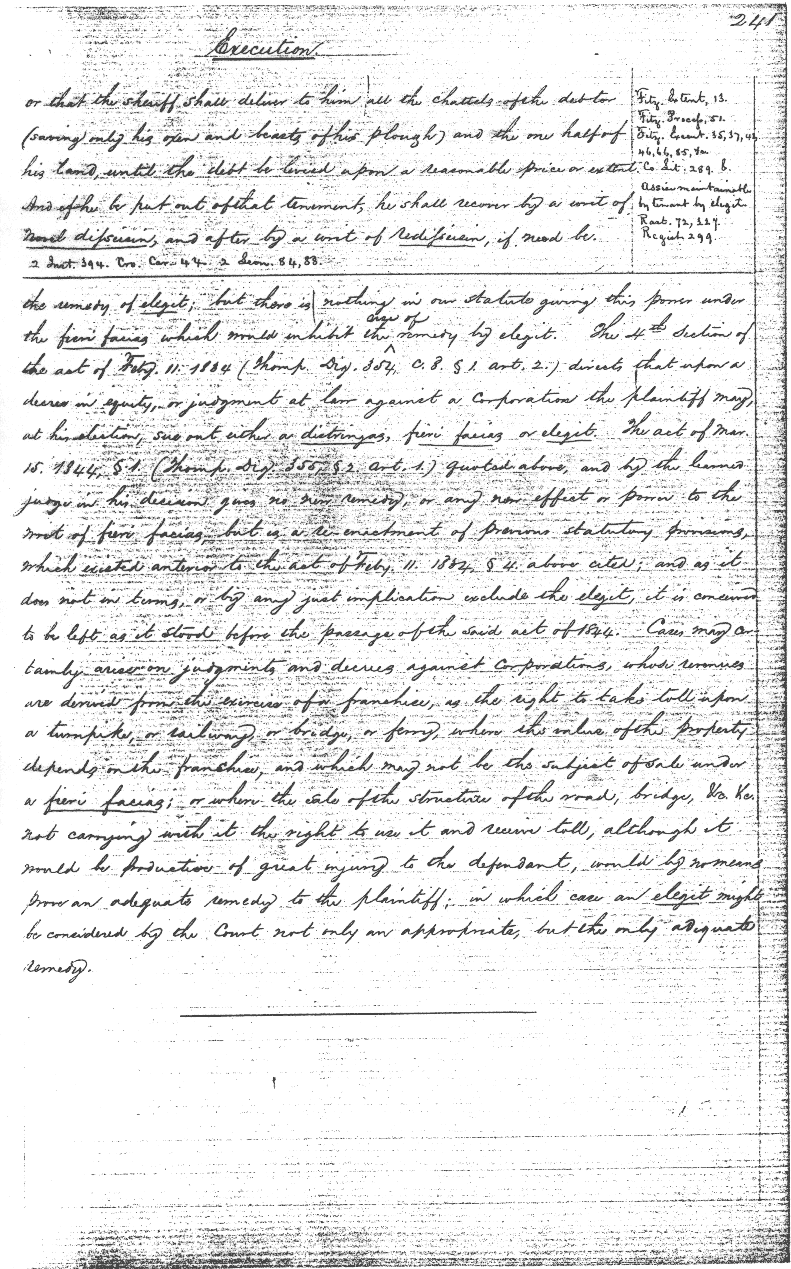 241
Execution.
or that the sheriff shall deliver to him all the chattels of the debtor
(saving only his oxen and beasts of his plough) and the one half of
his land, until the debt be levied upon a reasonable price or extent.
And if he be put out of that tenement, he shall recover by a writ of
Novel disseisin, and after by a writ of redisseisin, if need be.
2 Inst. 394. Cro. Car. 44. 2 Leon. 84, 88.
Fitz. Extent, 13.
Fitz. Process, 51.
Fitz. Execut. 35, 37, 42
46, 66, 85,
Co. Lit. 289. b.
Assise maintainable
by tenant by elegit.
Rast. 72, 117.
Regist. 299.
the remedy of elegit; but there is nothing in our statute giving this power under
the fieri facias which would inhibit the use of remedy by elegit. The 4th Section of
the act of Feby. 11. 1834 (Thomp. Dig. 354, C. 8. § 1. art. 2.) directs that upon a
decree in equity, or judgment at law against a Corporation the plaintiff may,
at his election, sue out either a distringas, fieri facias or elegit. The act of Mar.
15. 1844, § 1. (Thomp. Dig. 355, § 2 art. 1.) quoted above, and by the learned
judge in his decision gives no new remedy, or any new effect or power to the
writ of fieri facias, but is a re-enactment of previous statutory provisions,
which existed anterior to the act of Feby. 11. 1834, § 4. above cited; and as it
does not in terms, or by any just implication exclude the elegit, it is conceived
to be left as it stood before the passage of the said act of 1844. Cases may cer-
tainly arise on judgments and decrees against Corporations, whose revenues
are derived from the exercise of a franchise, as the right to take toll upon
a turnpike, or railway, or bridge, or ferry, where the value of the property
depends on the franchise, and which may not be the subject of sale under
a fieri facias; or where the sale of the structure of the road, bridge, &c. &c.
not carrying with it the right to use it and receive toll, although it
would be productive of great injury to the defendant, would by no means
prove an adequate remedy to the plaintiff; in which case an elegit might
be considered by the Court not only an appropriate, but the only adequate
remedy.